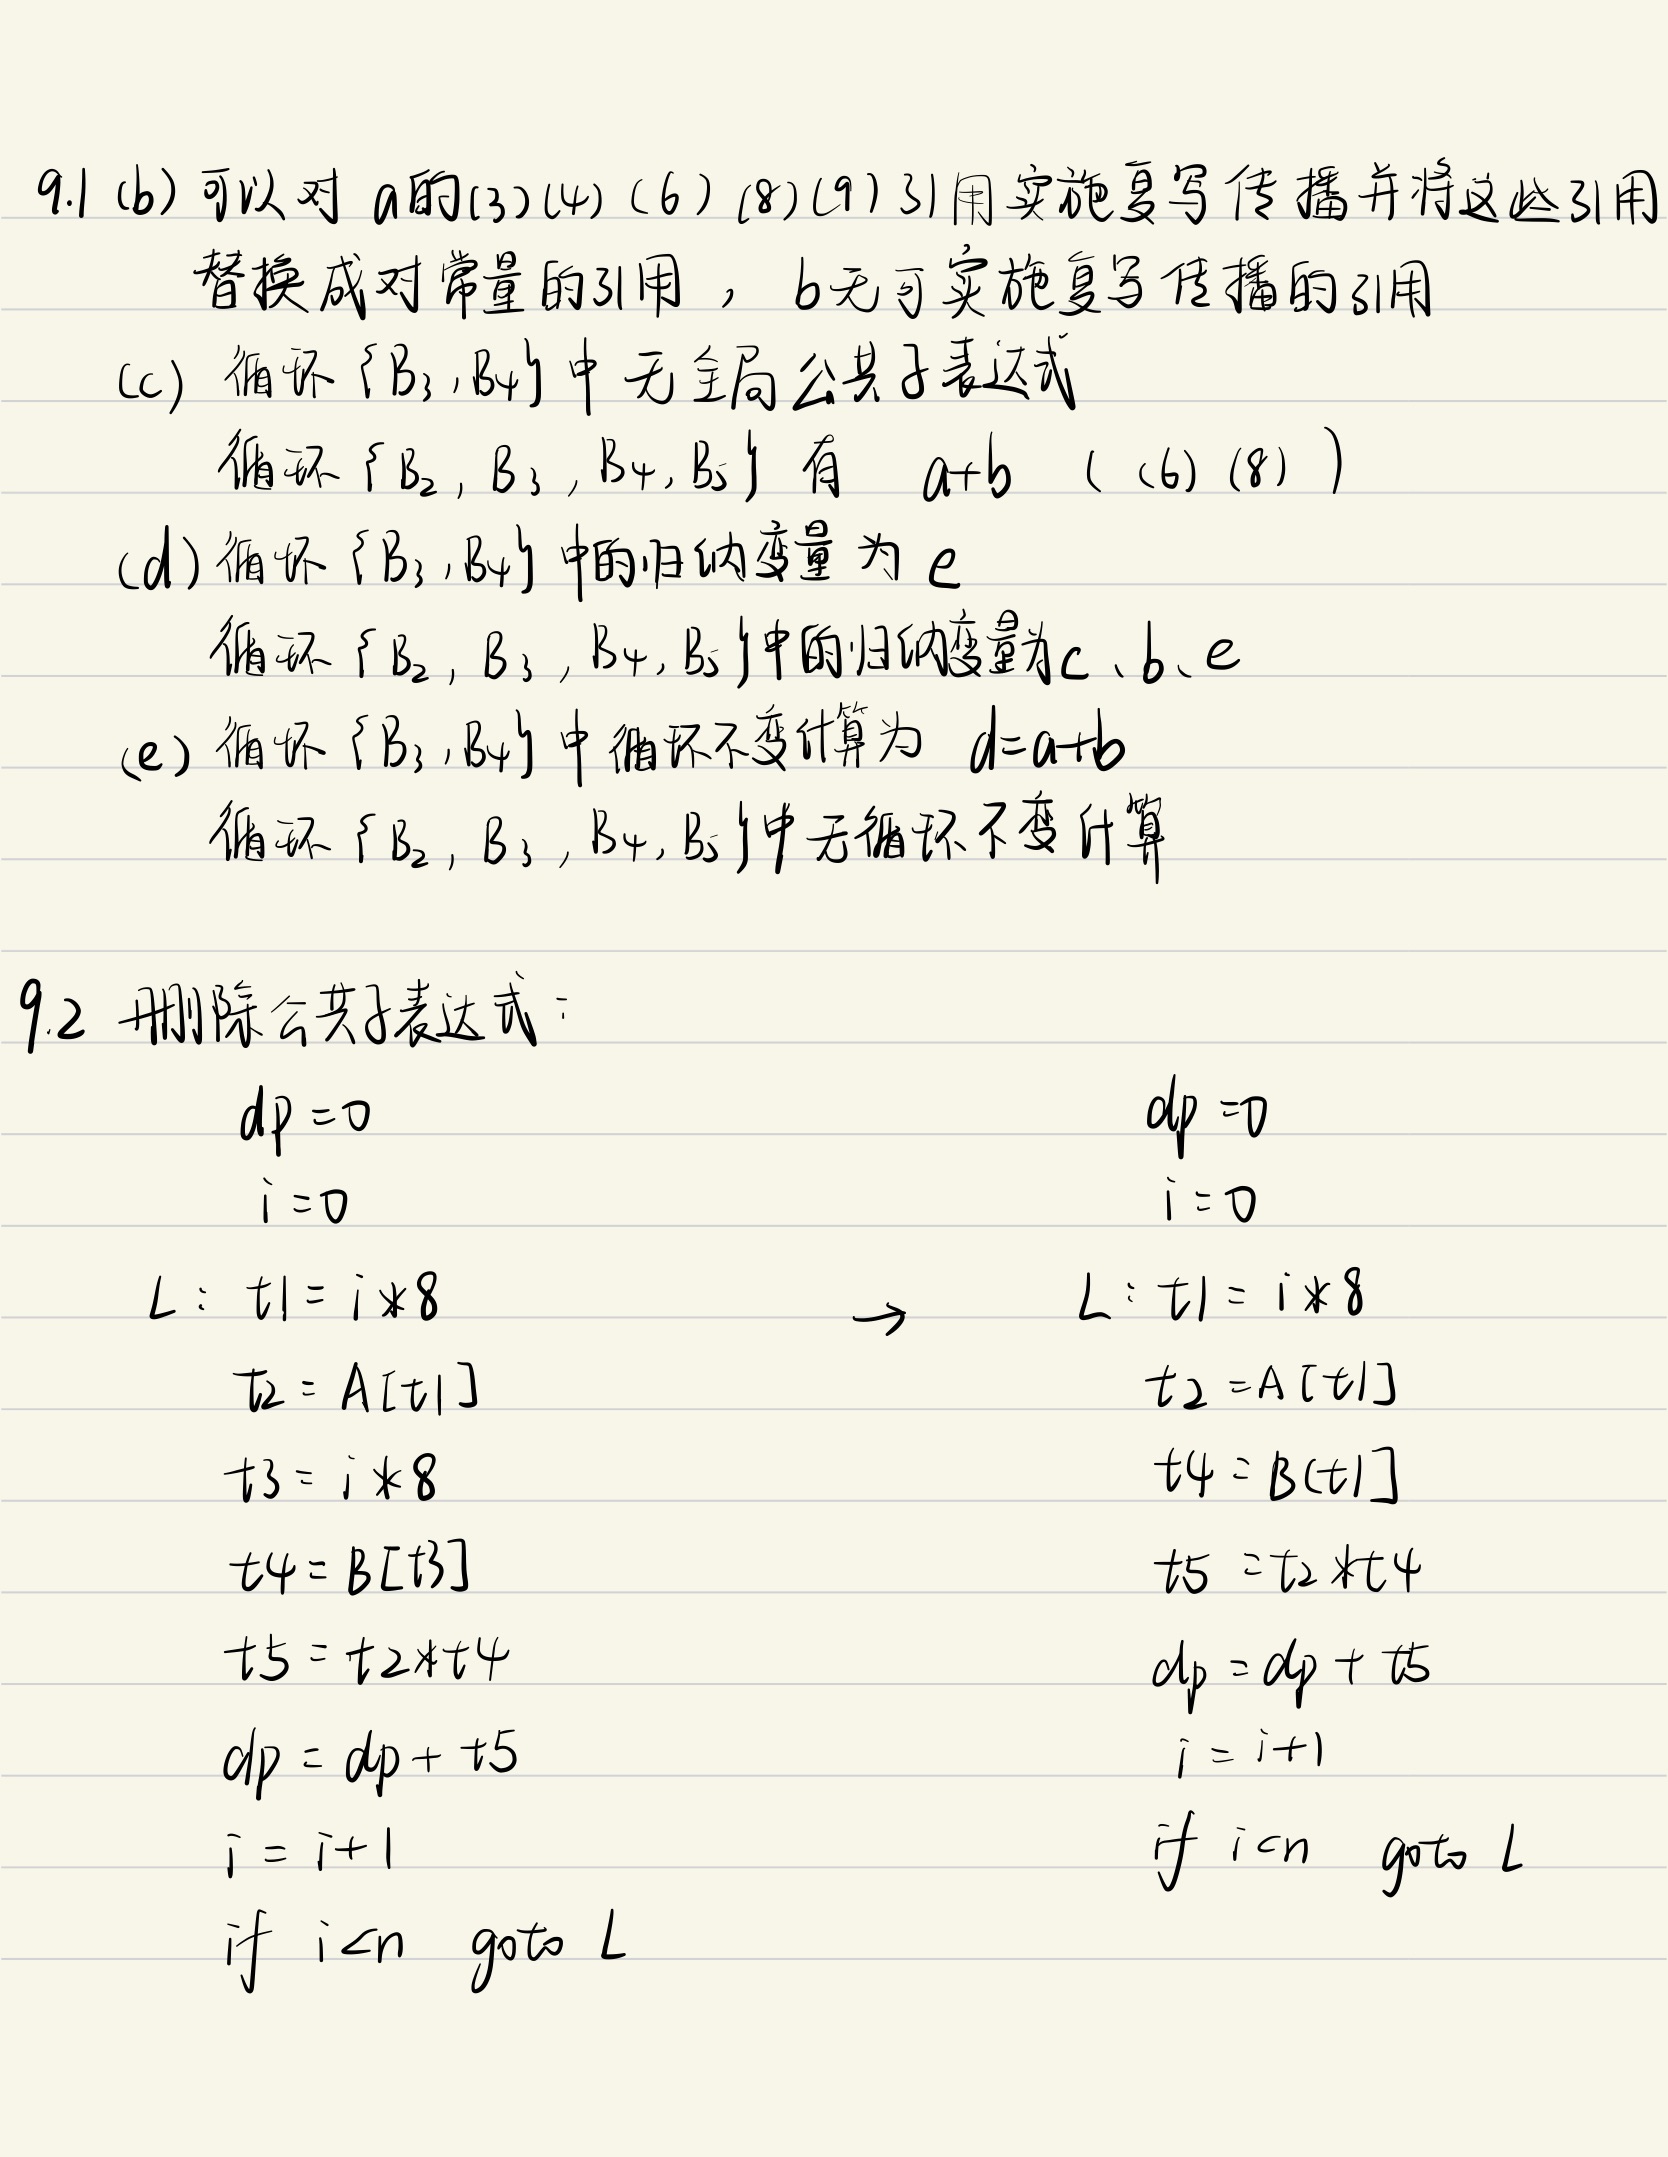 9.1 (b) 可以对 a的(3)(4) (6) (8)(9)引用实施复写传播并将这些引用
替换成对常量的引用， b无可实施复写传播的引用
(c) 循环{B3,B4}中无全局公共子表达式
循环{B2, B3, B4, B5}有 a+b ((6)(8))
(d) 循环{B3,B4}中的归纳变量为e
循环{B2, B3, B4, B5}中的归纳变量为c、b、e
(e) 循环{B3,B4}中循环不变计算为 d=a+b
循环{B2, B3, B4, B5}中无循环不变计算
9.2 删除公共子表达式：
dp=0
i=0
L: t1=i*8
t2=A[t1]
t3=i*8
t4=B[t3]
t5=t2*t4
dp=dp+t5
i=i+1
if i<n goto L
→
dp=0
i=0
L: t1=i*8
t2=A[t1]
t4=B[t1]
t5=t2*t4
dp=dp+t5
i=i+1
if i<n goto L